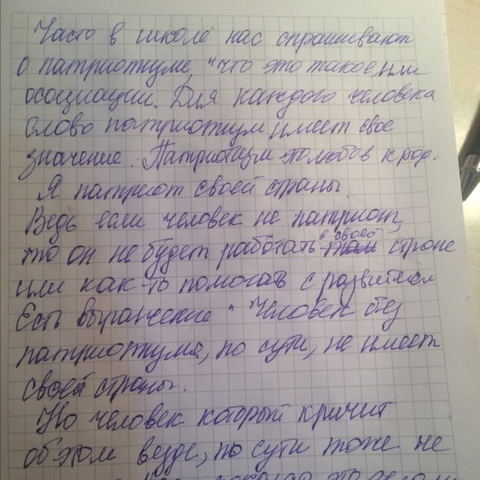 Часто в школе нас спрашивают
о патриотизме, "что это такое или
осоциации. Для каждого человека
слово патриотизм имеет свое
значение. Патриотизм это любов к род.
Я патриот своей страны.
Ведь если человек не патриот,
то он не будет работать в своей стране
или как-то помогать с развитием
Есть выражение " Человек без
патриотизма, по сути, не имеет
своей страны.
Но человек который кричит
об этом везде, по сути тоже не